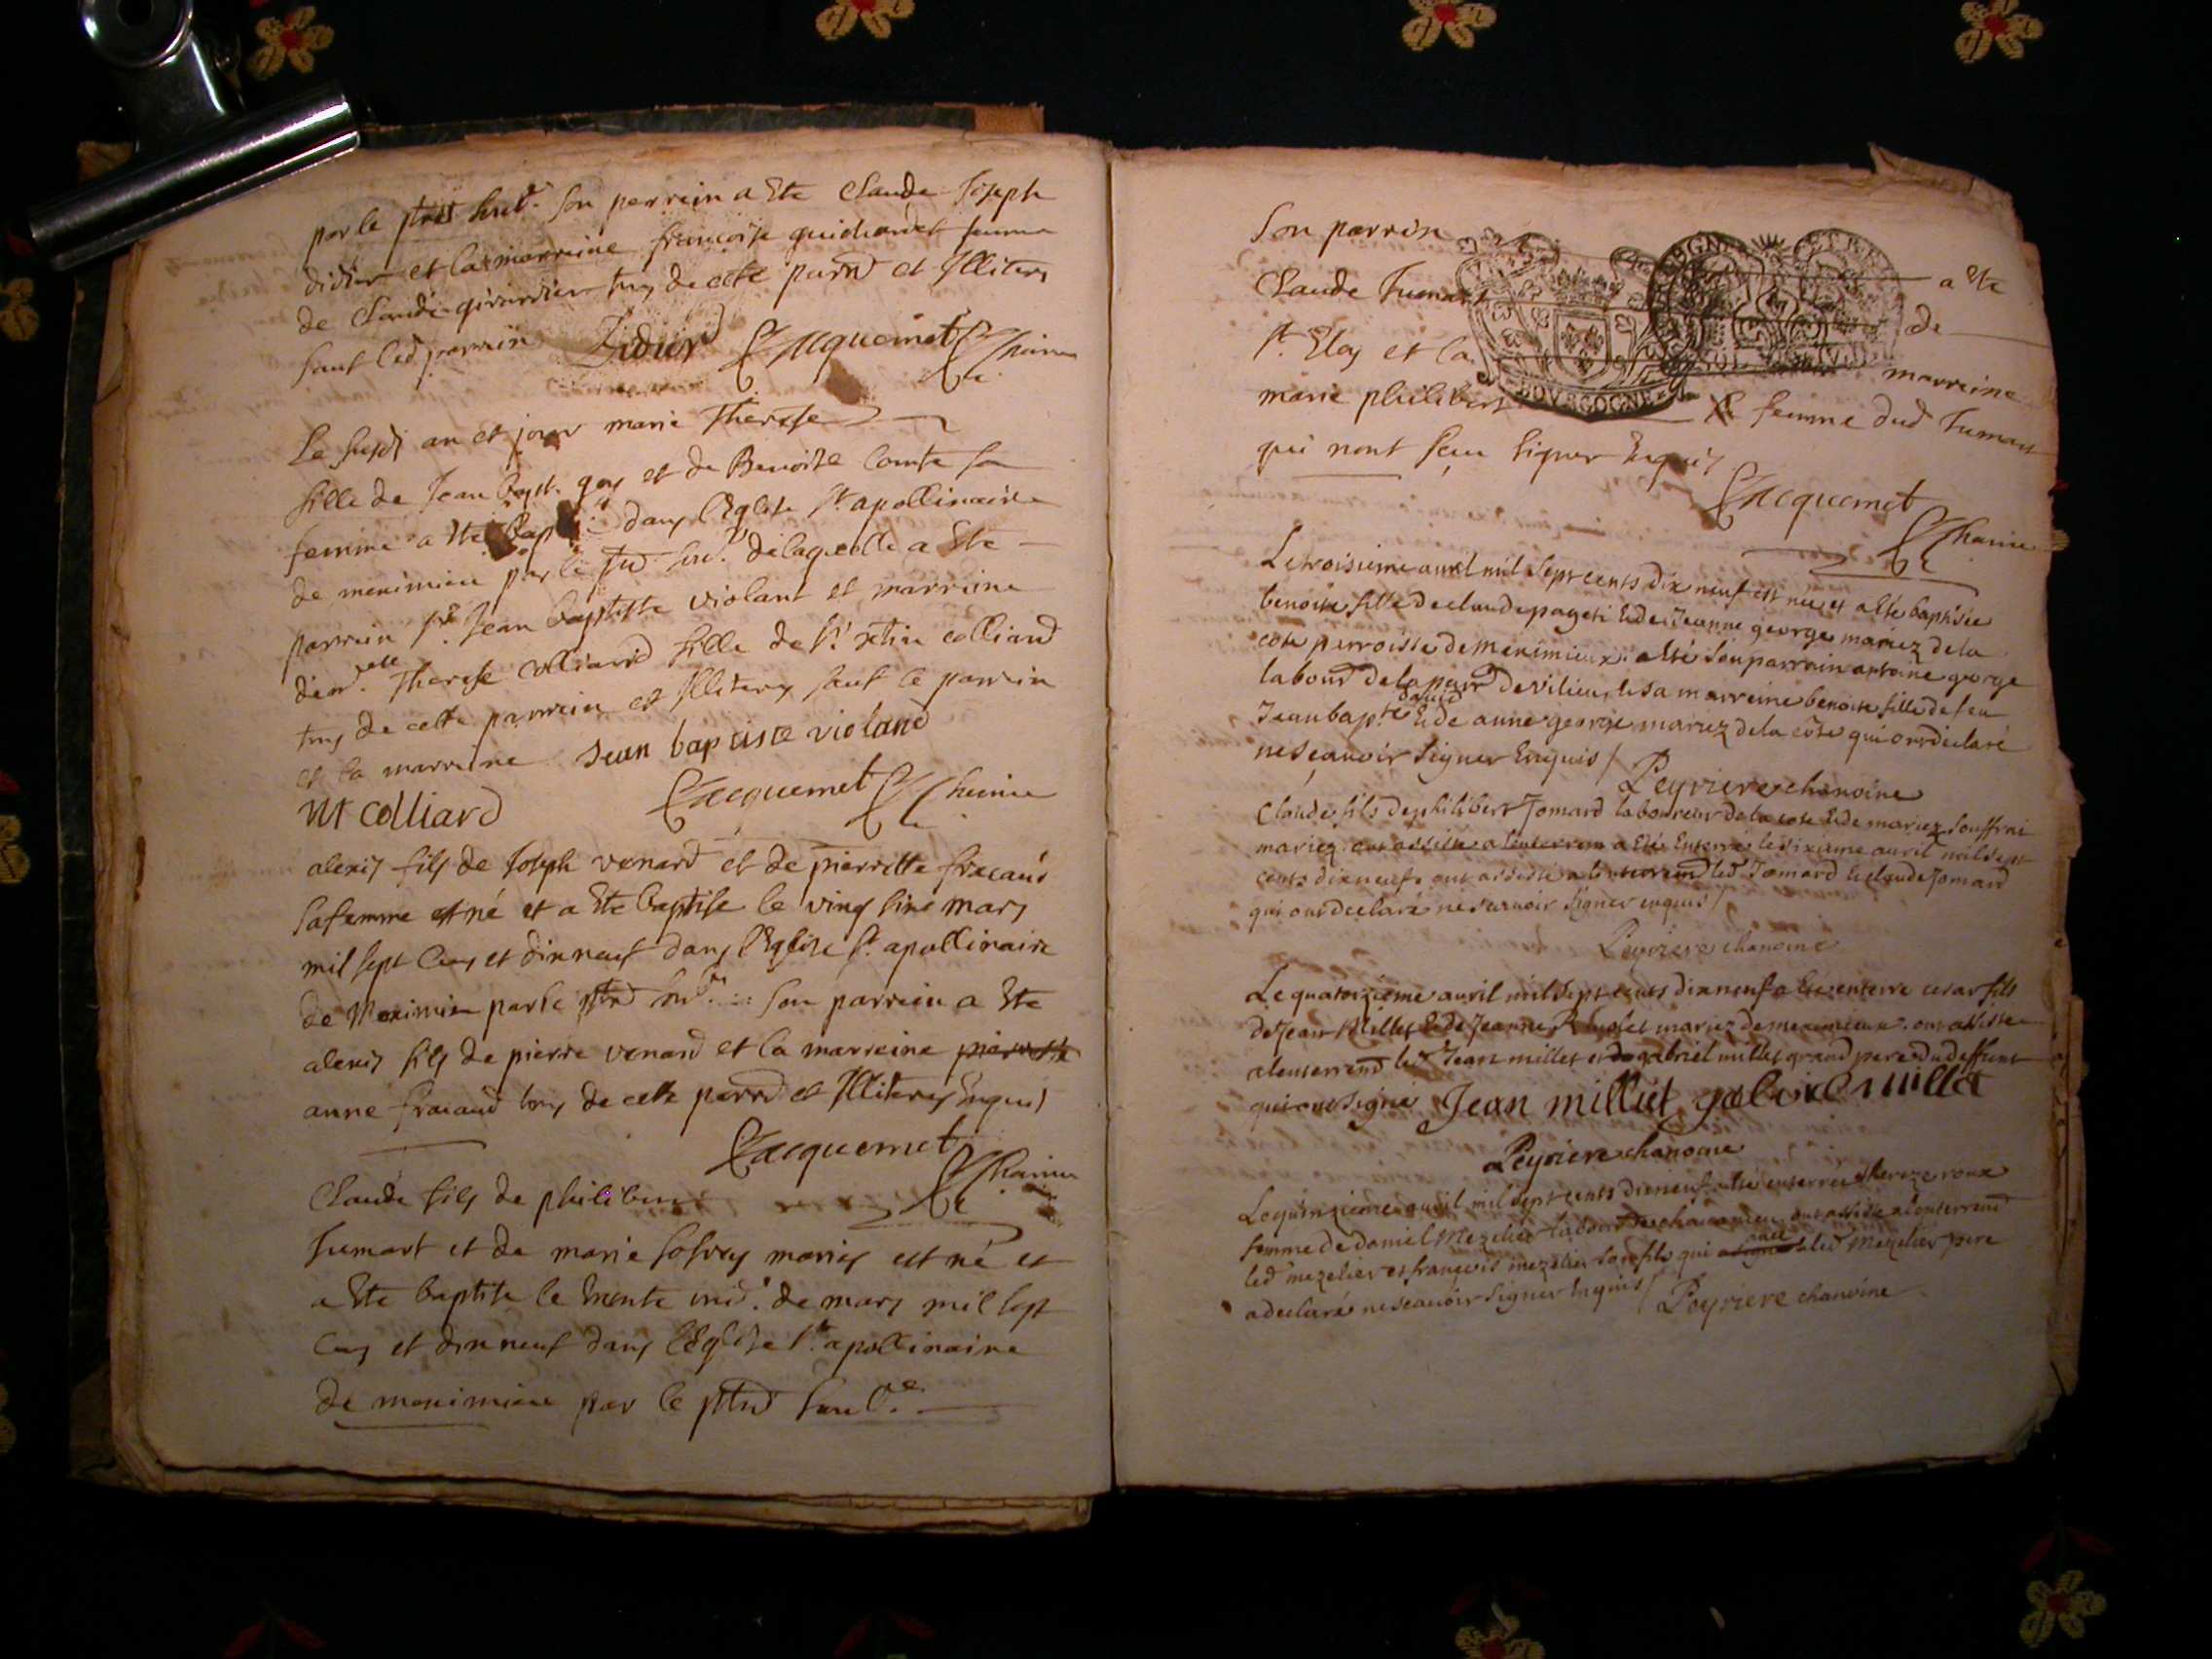 par le  Son parrein a Ete Claude Joseph
didier et la marreine francoise guichardet femme
de Claude girardier tous de cette parr et Illiteres
sauf led parrein Didier Jacquemet Chanoine
Le susdt an et jour marie Therese
fille de Jean bapte guy et de Benoiste Comte sa
femme a Ete bap dans l'Eglise st apollinaire
de meximieu par le  de laquelle a Ete
parrein sr Jean baptiste violant et marreine
demelle Therese colliard fille de sr colliard
tous de cette parroisse et Illiteres sauf le parrein
et la marreine Jean baptiste violand
MT colliard Jacquemet Chanoine
alexis fils de Joseph venard et de pierrette fracaud
sa femme est né et a Ete baptise le ving sixe mars
mil sept Cens et dixneuf dans l'Eglise st apollinaire
de Meximieu par le  son parrein a Ete
alexis fils de pierre venard et la marreine pierrette
anne fracaud tous de cette parr et Illiteres Enquis
Jacquemet Chanoine
Claude fils de philibert
Jumart et de marie sofrey maries est né et
a Ete baptise le trente unie de mars mil sept
Cens et dixneuf dans l'Eglise st apollinaire
de meximieu par le
Son parrein a Ete
Claude Jumart de
st Eloy et la marreine
marie philibert femme dud Jumart
qui nont sceu signer Enquis
BOURGOGNE
Jacquemet
Chanoine
Le troisieme avril mil sept cents dix neuf est née et a été baptisée
benoite fille de claude pageti & de Jeanne george mariez de la
cote perroisse de meximieux. a été son parrain antoine george
labour de la parr de vilieu, & sa marreine benoite fille de feu
Jean bapte david & de anne george mariez de la côte qui ont déclaré
ne sçavoir signer Enquis / Peyriere chanoine
Claude fils de philibert Jomard laboureur de la cote & de marie souffrai
mariez ont assisté a lenterrem a été Enterré le sixieme avril mil sept
cents dixneuf. ont assisté a lenterrem led Jomard & claude Jomard
qui ont declaré ne scavoir signer enquis /
Peyriere chanoine
Le quatorzieme avril mil sept cents dixneuf a été enterré cesar fils
de Jean Millet & de Jeanne mariez de meximieux. ont assisté
a lenterrem led Jean millet et de gabriel millet grand pere du deffunt
qui ont signé Jean milliet gabriel millet
Peyriere chanoine
Le quinzieme avril mil sept cents dixneuf a été enterrée thereze roux
femme de daniel Mezelier labour de ont assisté a lenterrem
led mezelier et françois mezelier son fils qui a signé avec led Mezelier pere
a declaré ne scavoir signer Enquis / Peyriere chanoine